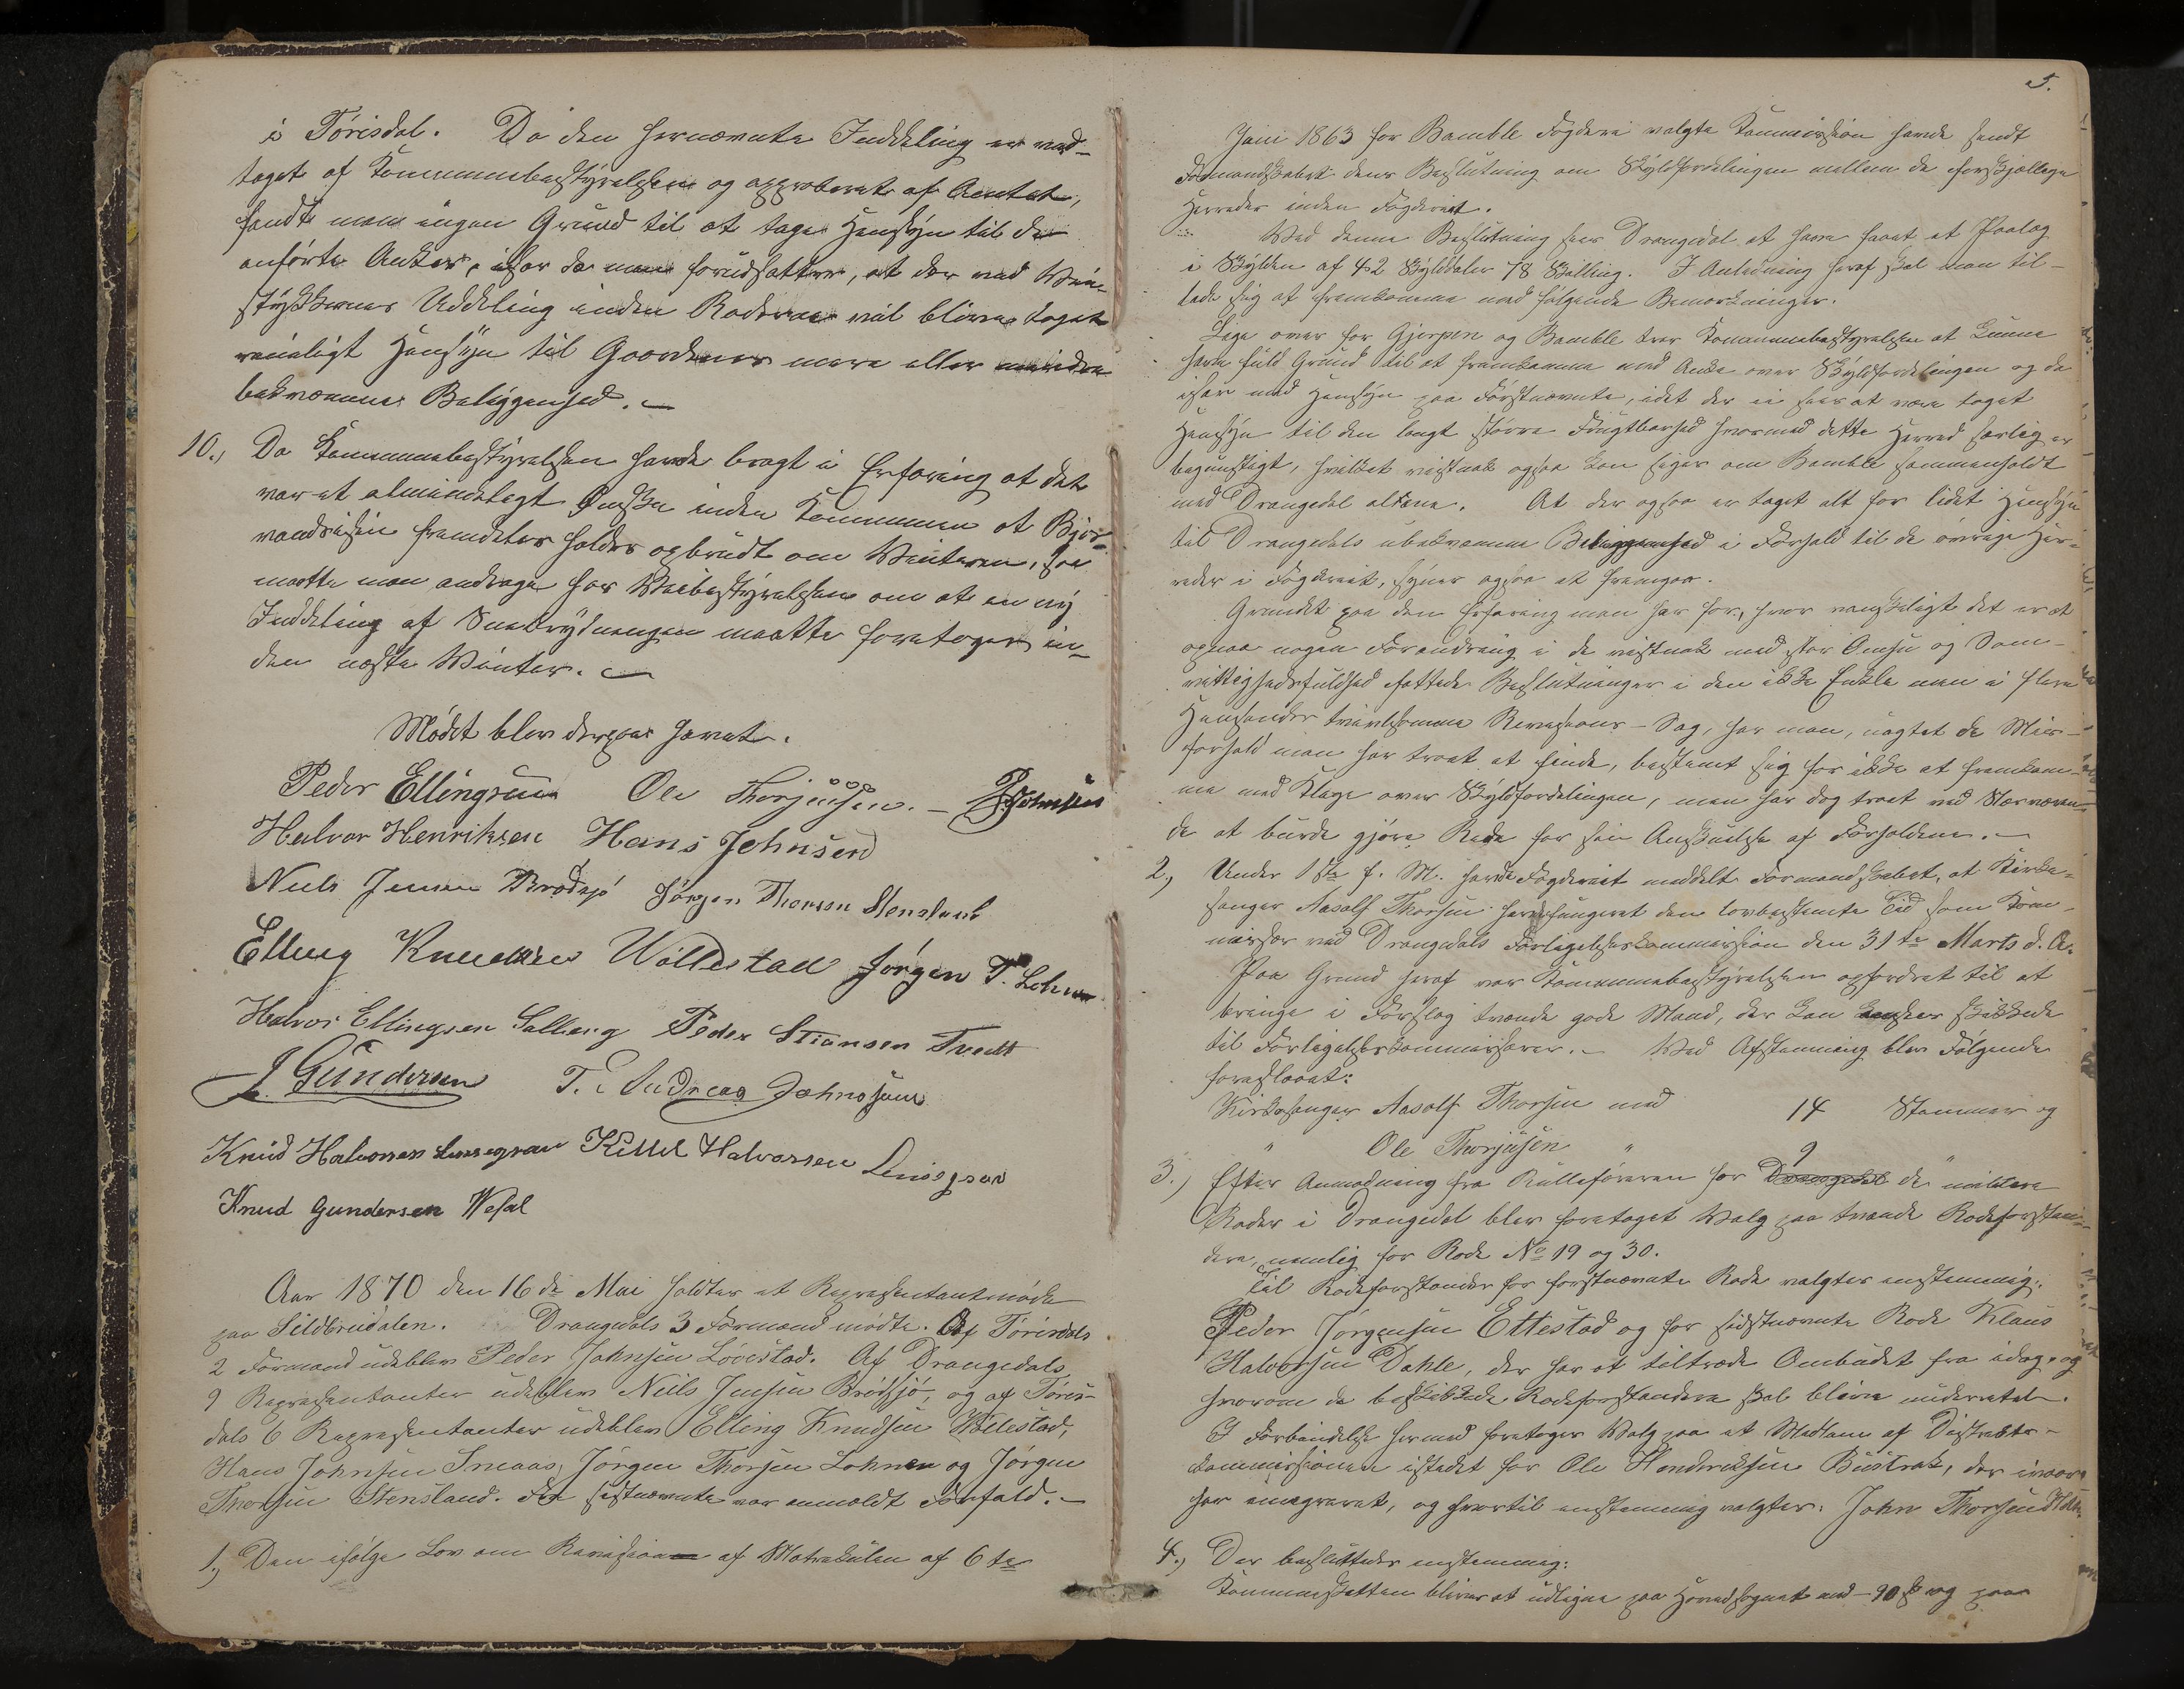 i Tørisdal. Da den hernævnte Inddeling er ved-
taget af Kommunebestyrelsen og approberet af Amtet,
fandt man ingen Grund til at tage Hensyn til de
anførte Anker, især da man forudsætter, at der ved Vei-
stykkernes Uddeling inden Roderne vil blive taget
rimeligt Hensyn til Gaardenes mere eller mindre
bekvemme Beliggenhed. —
10., Da Kommunebestyrelsen havde bragt i Erfaring at det
var et almindeligt Ønske inden Kommunen at Bjor-
vandveien fremdeles holdes opbrudt om Vinteren, saa
maatte man andrage for Veibestyrelsen om at en ny
Inddeling af Snebrydningen maatte foretages in-
den næste Vinter. —
Mødet blev derpaa hævet.
Peder Ellingsen Ole Thorjussen. — Johnsen
Halvor Henriksen Hans Johnsen
Niels Jensen Brødsjø Jørgen Thorsen Stensland
Elling Knudsen Wøllestad Jørgen T. Lohne
Halvor Ellingsen Solberg Peder Stiansen Tvedt
J. Gundersen T. Andreas Johnsen
Knud Halvorsen Kittel Halvorsen
Knud Gundersen Wefal
Aar 1870 den 16de Mai holdtes et Repræsentantmøde
paa Sildbrudalen. Drangedals 3 Formænd mødte. Af Tørisdals
2 Formænd udeblev Peder Johnsen Lovestad. Af Drangedals
9 Repræsentanter udeblev Niels Jensen Brødsjø, og af Tøris-
dals 6 Repræsentanter udeblev Elling Knudsen Wøllestad,
Hans Johnsen Sneaas, Jørgen Thorsen Lohne og Jørgen
Thorsen Stensland. For sidstnævnte var anmeldt Forfald. —
1., Den ifølge Lov om Revision af Matrikulen af 6te
5.
Juni 1863 for Bamble Fogderi valgte Kommission havde sendt
Formandskabet dens Beslutning om Skyldfordelingen mellem de forskjellige
Herreder inden Fogderiet.
Ved denne Beslutning sees Drangedal at have faaet et Paalæg
i Skylden af 42 Skylddaler 78 Skilling. I Anledning heraf skal man til-
lade sig at fremkomme med følgende Bemærkninger.
Lige over for Gjerpen og Bamble tror Kommunebestyrelsen at kunne
have fuld Grund til at fremkomme med Anke over Skyldfordelingen og da
især med Hensyn paa Førstnævnte, idet der ei sees at være taget
Hensyn til den langt større Frugtbarhed hvormed dette Herred særlig er
begunstiget, hvilket vistnok ogsaa kan siges om Bamble sammenholdt
med Drangedal alene. At der ogsaa er taget alt for lidet Hensyn
til Drangedals ubekvemme Beliggenhed i Forhold til de øvrige Her-
reder i Fogderiet, synes ogsaa at fremgaa.
Grundet paa den Erfaring man har for, hvor vanskeligt det er at
opnaa nogen Forandring i de vistnok med stor Omhu og Sam-
vittighedsfuldhed fattede Beslutninger i den ikke Enkle men i flere
Henseender tvivlsomme Revisions-Sag, har man, uagtet de Mis-
forhold man har troet at finde, bestemt sig for ikke at fremkom-
me med Klage over Skyldfordelingen, men har dog troet ved Nærværen-
de at burde gjøre Rede for sin Anskuelse af Forholdene. —
2., Under 1ste f. M. havde Fogderiet meddelt Formandskabet, at Kirke-
sanger Aasolf Thorsen havde fungeret den lovbestemte Tid som Kom-
missær ved Drangedals Forligelseskommission den 31te Marts d. A.
Paa Grund heraf var Kommunebestyrelsen opfordret til at
bringe i Forslag tvende gode Mænd, der kan ansees skikkede
til Forligelseskommissærer. — Ved Afstemning blev Følgende
foreslaaet:
Kirkesanger Aasolf Thorsen med 14 Stemmer og
" Ole Thorjusen " 9 "
3., Efter Anmodning fra Rulleføreren for Drangedal de militære
Roder i Drangedal blev foretaget Valg paa tvende Rodeforstan-
dere, nemlig for Rode No 19 og 30.
Til Rodeforstander for førstnævnte Rode valgtes enstemmig:
Peder Jørgensen Ettestad og for sidstnævnte Rode Klaus
Halvorsen Dahle, der har at tiltræde Ombudet fra idag, og
hvorom de beskikkede Rodeforstandere skal blive underrettet.
I Forbindelse hermed foretoges Valg paa et Medlem af Distrikts-
kommissionen istedet for Ole Hendriksen Bustrak, der
har emigreret, og hvortil enstemmig valgtes: John Thorsen
4., Der besluttedes enstemmig:
Kommuneskatten bliver at udligne paa Hovedsognet med 90 ß og paa